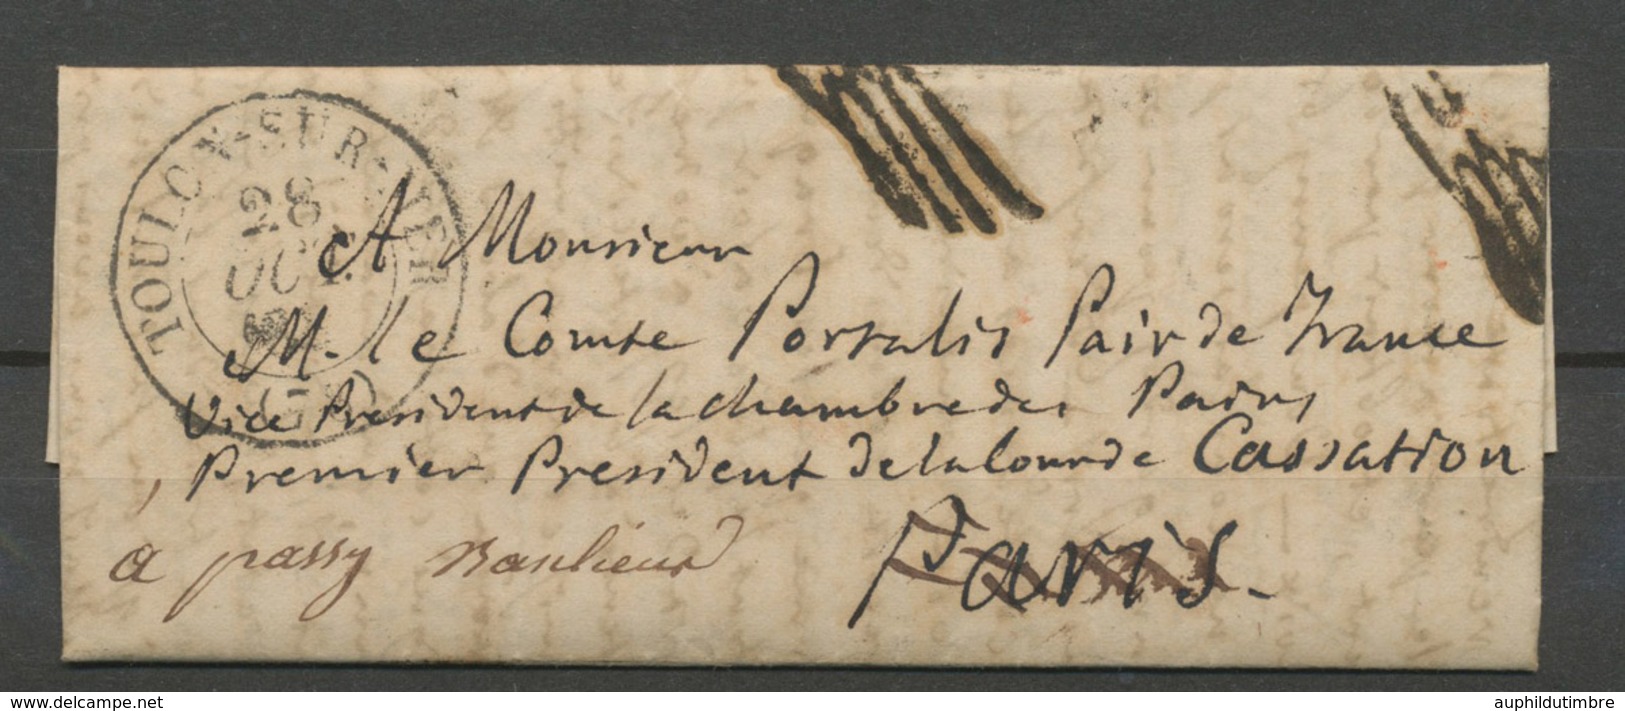 TOULON-SUR-MER
28
OCT.
(78)
A Monsieur
M. le Comte Portalis Pair de France
Vice President de la chambre des Pairs
Premier President de la Cour de Cassation
Paris.
a passy Banlieue
auphildutimbre.com